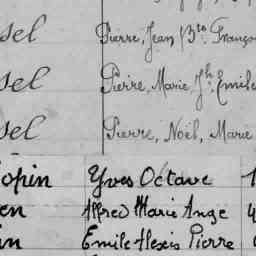 sel Pierre, Jean Bte. Franço
sel Pierre, Marie, Jh. Emile
sel Pierre, Noël, Marie
opin Yves Octave 1
en Alfred Marie Ange 4
in Emile Alexis Pierre